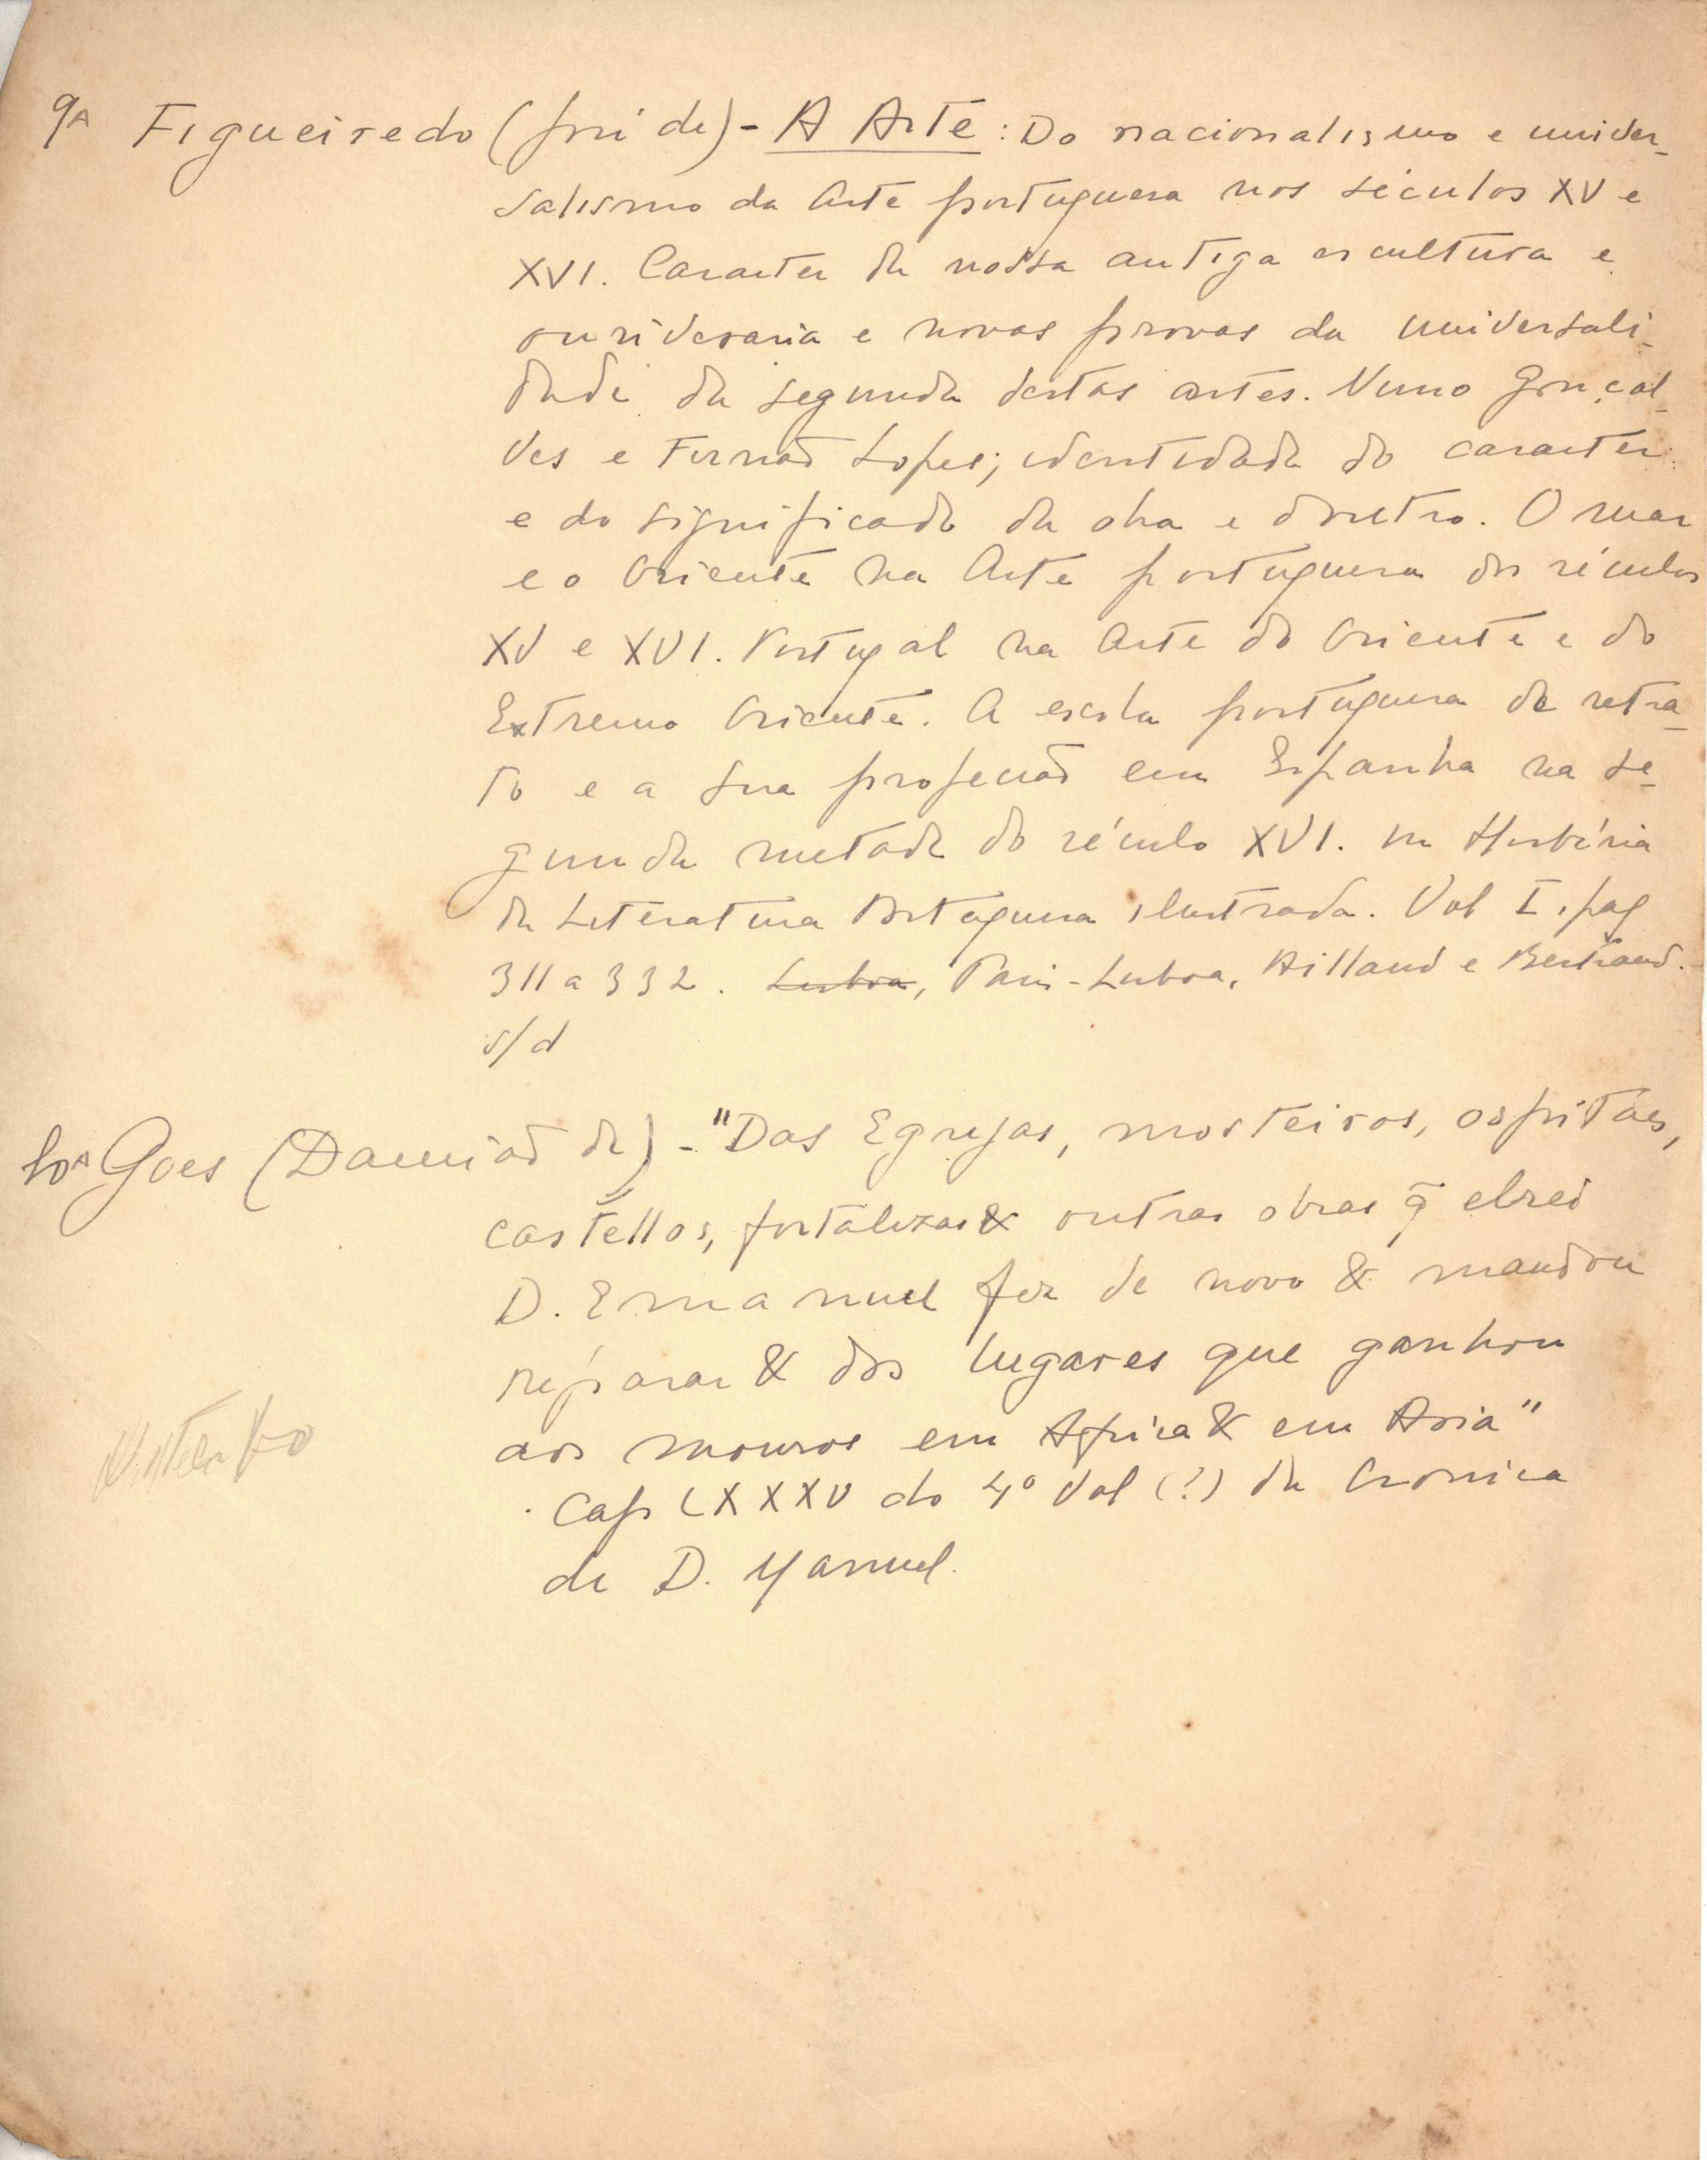 9A Figueiredo (José de) - A Arte: Do nacionalismo e univer-
salismo da Arte portuguesa nos séculos XV e
XVI. Caracter da nossa antiga escultura e
ourivesaria e novas provas da universali-
dade da segunda destas artes. Nuno Gonçal-
ves e Fernão Lopes; identidade do caracter
e do significado da obra e doutro. O mar
e o Oriente na Arte portuguesa dos séculos
XV e XVI. Portugal na Arte do Oriente e do
Extremo Oriente. A escola portuguesa de retra-
to e a sua projecção em Espanha na se-
gunda metade do século XVI. in História
da Literatura Portuguesa ilustrada. Vol I, pag
311 a 332. Lisboa, Paris-Lisboa, Aillaud e Bertrand.
s/d
10A Goes (Damião de) - "Das Egrejas, mosteiros, ospitáes,
castellos, fortalezas & outras obras q̃ elrei
D. Emanuel fez de novo & mandou
reparar & dos lugares que ganhou
aos mouros em Africa & em Asia"
Cap LXXXV do 4º Vol (?) da Cronica
de D. Manuel.